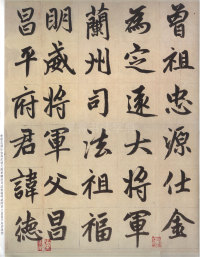 曾祖忠源仕金
為定遠大將軍
蘭州司法祖福
明威將軍父昌
昌平府君諱德